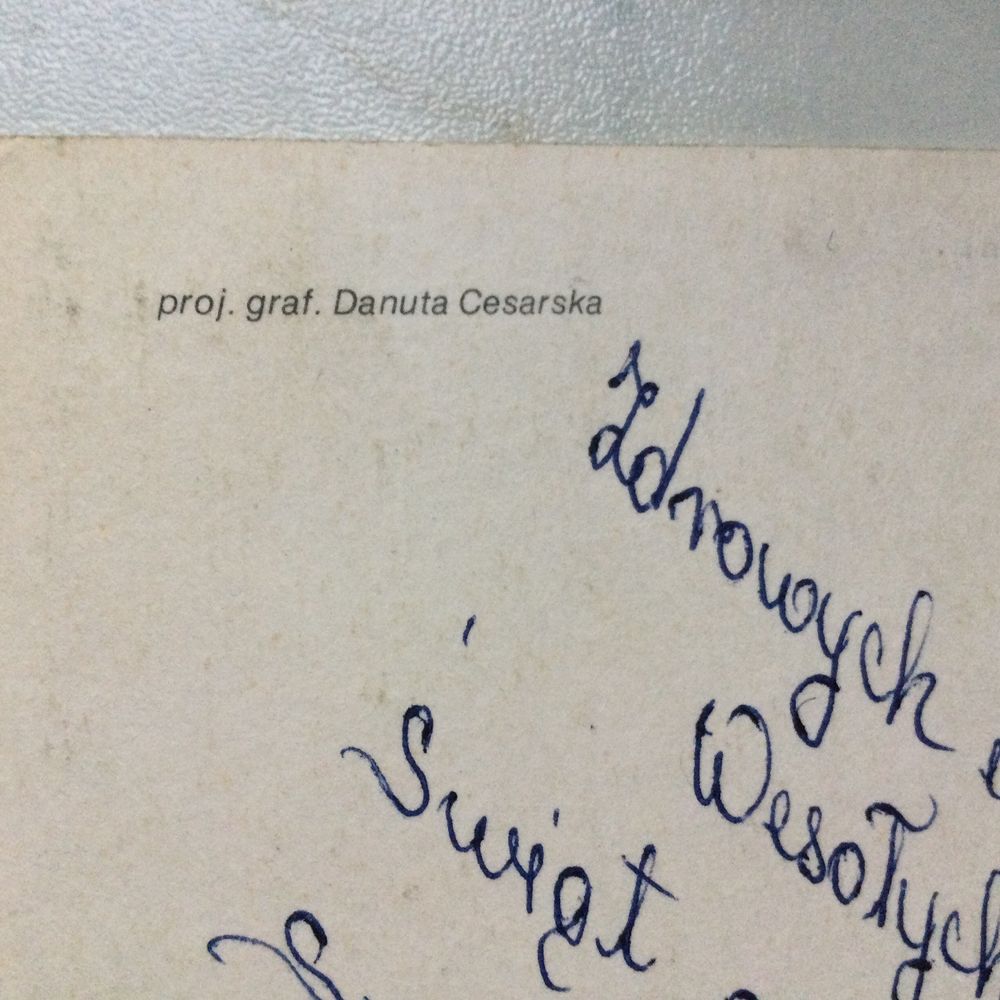 proj. graf. Danuta Cesarska
Zdrowych
Wesołych
Świąt